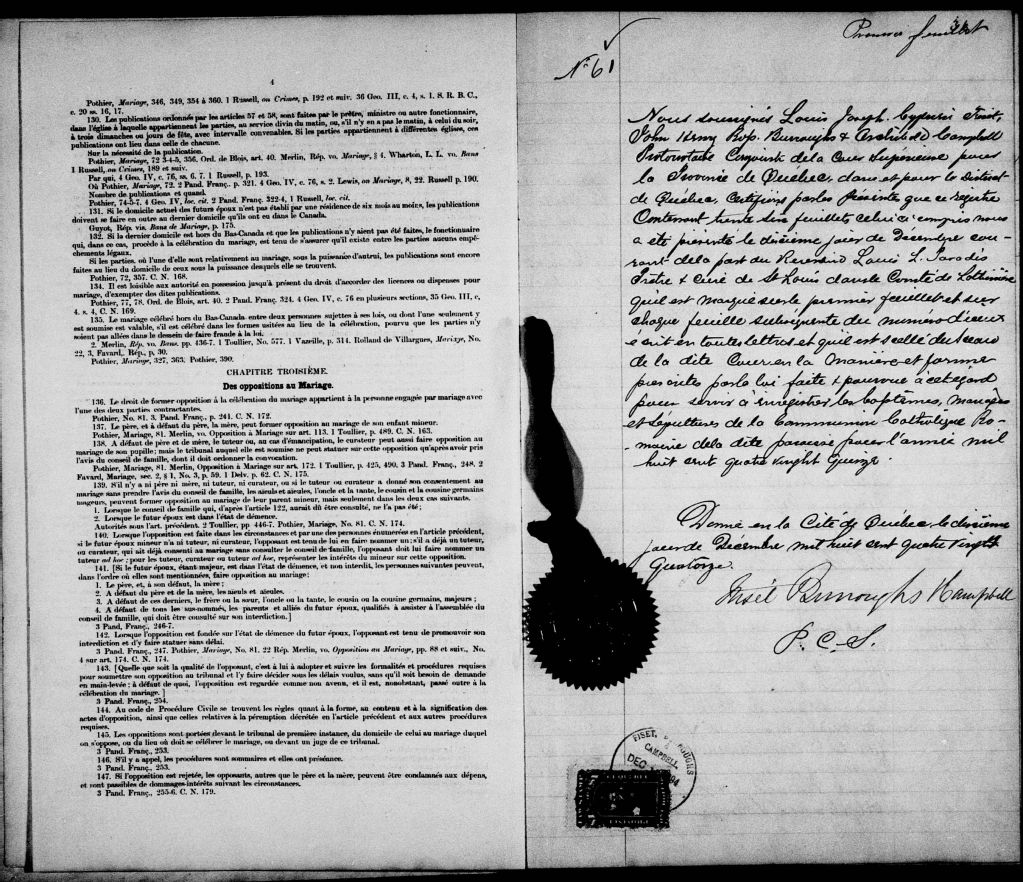 4
Pothier, Mariage, 346, 349, 354 à 360. 1 Russell, on Crimes, p. 192 et suiv. 36 Geo. III, c. 4, s. 1. S. R. B. C.,
c. 20 ss. 16, 17.
130. Les publications ordonnées par les articles 57 et 58, sont faites par le prêtre, ministre ou autre fonctionnaire,
dans l'église à laquelle appartiennent les parties, au service divin du matin, ou, s'il n'y en a pas le matin, à celui du soir,
à trois dimanches ou jours de fête, avec intervalle convenables. Si les parties appartiennent à différentes églises, ces
publications ont lieu dans celle de chacune.
Sur la nécessité de la publication.
Pothier, Mariage, 72 3-4-5, 356, Ord. de Blois, art. 40. Merlin, Rép. vo. Mariage, § 4. Wharton, L. L. vo. Bans
1 Russell, on Crimes, 189 et suiv.
Par qui, 4 Geo. IV, c. 76, ss. 6. 7. 1 Russell, p. 193.
Où Pothier, Mariage, 72. 2 Pand. Franç. p. 321. 4 Geo. IV, c. 76, s. 2. Lewis, on Mariage, 8, 22. Russell p. 190.
Nombre de publications et quand.
Pothier, 74-5-7. 4 Geo. IV, loc. cit. 2 Pand. Franç. 322-4, 1 Russell, loc. cit.
131. Si le domicile actuel des futurs époux n'est pas établi par une résidence de six mois au moins, les publications
doivent se faire en outre au dernier domicile qu'ils ont eu dans le Canada.
Guyot, Rép. vis. Bans de Mariage, p. 175.
132. Si la dernier domicile est hors du Bas-Canada et que les publications n'y aient pas été faites, le fonctionnaire
qui, dans ce cas, procède à la célébration du mariage, est tenu de s'assurer qu'il existe entre les parties aucuns empê-
chements légaux.
Si les parties, où l'une d'elle sont relativement au mariage, sous la puissance d'autrui, les publications sont encore
faites au lieu du domicile de ceux sous la puissance desquels elle se trouvent.
Pothier, 72, 357. C. N. 168.
134. Il est loisible aux autorité en possession jusqu'à présent du droit d'accorder des licences ou dispenses pour
mariage, d'exempter des dites publications.
Pothier, 77, 78. Ord. de Blois, art. 40. 2 Pand. Franç. 324. 4 Geo. IV, c. 76 en plusieurs sections, 35 Geo. III, c,
4. s. 4, C. N. 169.
135. Le mariage célébré hors du Bas-Canada entre deux personnes sujettes à ses lois, ou dont l'une seulement y
est soumise est valable, s'il est célébré dans les formes usitées au lieu de la célébration, pourvu que les parties n'y
soient pas allées dans le dessein de faire fraude à la loi.
2. Merlin, Rép. vo. Bans pp. 436-7. 1 Toullier, No. 577. 1 Vazeille, p. 314. Rolland de Villargues, Mariage, No.
22, 3, Favard, Rép., p. 30.
Pothier, Mariage, 327, 363, Pothier, 390.
CHAPITRE TROISIÈME.
Des oppositions au Mariage.
136. Le droit de former opposition à la célébration du mariage appartient à la personne engagée par mariage avec
l'une des deux parties contractantes.
Pothier, No. 81, 3, Pand. Franç., p. 241. C. N. 172.
137. Le père, et à défaut du père, la mère, peut former opposition au mariage de son enfant mineur.
Pothier, Mariage, 81. Merlin, vo. Opposition à Mariage sur art. 113. 1 Toullier, p. 489. C. N. 163.
138. A défaut de père et de mère, le tuteur ou, au cas d'émancipation, le curateur peut aussi faire opposition au
mariage de son pupille; mais le tribunal auquel elle est soumise ne peut statuer sur cette opposition qu'après avoir pris
l'avis du conseil de famille, dont il doit ordonner la convocation.
Pothier, Mariage, 81. Merlin, Opposition à Mariage sur art. 172. 1 Toullier, p. 425, 490. 3 Pand. Franç., 248. 2
Favard, Mariage, sec. 2, § 1, No. 3, p. 59. 1 Delv. p. 62. C. N. 175.
139. S'il n'y a ni père ni mère, ni tuteur, ni curateur, ou si le tuteur ou curateur a donné son consentement au
mariage sans prendre l'avis du conseil de famille, les aïeuls et aïeules, l'oncle et la tante, le cousin et la cousine germains
majeurs, peuvent former opposition au mariage de leur parent mineur, mais seulement dans les deux cas suivants.
1. Lorsque le conseil de famille qui, d'après l'article 122, aurait dû être consulté, ne l'a pas été;
2. Lorsque le futur époux est dans l'état de démence.
Autorités sous l'art. précédent. 2 Toullier, pp 446-7. Pothier, Mariage, No. 81. C. N. 174.
140. Lorsque l'opposition est faite dans les circonstances et par une des personnes énumérées en l'article précédent,
si le futur époux mineur n'a ni tuteur, ni curateur, l'opposant est tenu de lui en faire nommer un; s'il a déjà un tuteur,
ou curateur, qui ait déjà consenti au mariage sans consulter le conseil de famille, l'opposant doit lui faire nommer un
tuteur ad hoc; pour les tuteur, curateur ou tuteur ad hoc, représenter les intérêts du mineur sur cette opposition.
141. [Si le futur époux, étant majeur, est dans l'état de démence, et non interdit, les personnes suivantes peuvent,
dans l'ordre où elles sont mentionnées, faire opposition au mariage:
1. Le père, et, à son défaut, la mère;
2. A défaut du père et de la mère, les aïeuls et aïeules.
3. A défaut de ces derniers, le frère ou la sœur, l'oncle ou la tante, le cousin ou la cousine germains, majeurs;
4. A défaut de tous les sus-nommés, les parents et alliés du futur époux, qualifiés à assister à l'assemblée du
conseil de famille, qui doit être consulté sur son interdiction.]
3 Pand. Franç., 246-7.
142. Lorsque l'opposition est fondée sur l'état de démence du futur époux, l'opposant est tenu de promouvoir son
interdiction et d'y faire statuer sans délai.
3 Pand. Franç., 247. Pothier, Mariage, No. 81. 22 Rép. Merlin, vo. Opposition au Mariage, pp. 88 et suiv., No.
4 sur art. 174. C. N. 174.
143. [Quelle que soit la qualité de l'opposant, c'est à lui à adopter et suivre les formalités et procédures requises
pour soumettre son opposition au tribunal et l'y faire décider sous les délais voulus, sans qu'il soit besoin de demande
en main-levée; à défaut de quoi, l'opposition est regardée comme non avenu, et il est, nonobstant, passé outre à la
célébration du mariage.]
3 Pand. Franç., 254.
144. Au code de Procédure Civile se trouvent les règles quant à la forme, au contenu et à la signification des
actes d'opposition, ainsi que celles relatives à la péremption décrétée en l'article précédent et aux autres procédures
requises.
145. Les oppositions sont portées devant le tribunal de première instance, du domicile de celui au mariage duquel
on s'oppose, ou du lieu où doit se célébrer le mariage, ou devant un juge de ce tribunal.
3 Pand. Franç., 253.
146. S'il y a appel, les procédures sont sommaires et elles ont préséance.
3 Pand. Franç., 253.
147. Si l'opposition est rejetée, les opposants, autres que le père et la mère, peuvent être condamnés aux dépens,
et sont passibles de dommages-intérêts suivant les circonstances.
3 Pand. Franç., 255-6. C. N. 179.
Premier feuillet
No 61
Nous soussignés Louis Joseph Cyprien Fiset,
John Henry Rop. Burroughs & Archibald Campbell
Protonotaire Conjoint de la Cour Supérieure pour
la Province de Québec, dans et pour le District
de Québec, Certifions par les présente que ce régistre
Contenant trente six feuillets celui ci compris nous
a été présenté le dixième jour de Décembre cou-
rant de la part du Révérend Louis L. Paradis
Prêtre & curé de St Louis dans le Comté de Lotbinière
qu'il est marqué sur le premier feuillet et sur
chaque feuille subséquente du numéro d'iceux
écrit en toutes lettres et qu'il est scellé du sceau
de la dite Cour en la manière et forme
prescrites par la loi faite & pourvue à cet égard
pour servir à enregistrer les baptêmes, mariages
et sépultures de la Communion Catholique Ro-
maine de la dite paroisse pour l'année mil
huit cent quatre vinght quinze.
Donné en la Cité de Québec, le dixième
jour de Décembre mil huit cent quatre vinght
Quatorze.
Fiset Burroughs & Campbell
P. C. S.
FISET, BURROUGHS
CAMPBELL
DEC
94